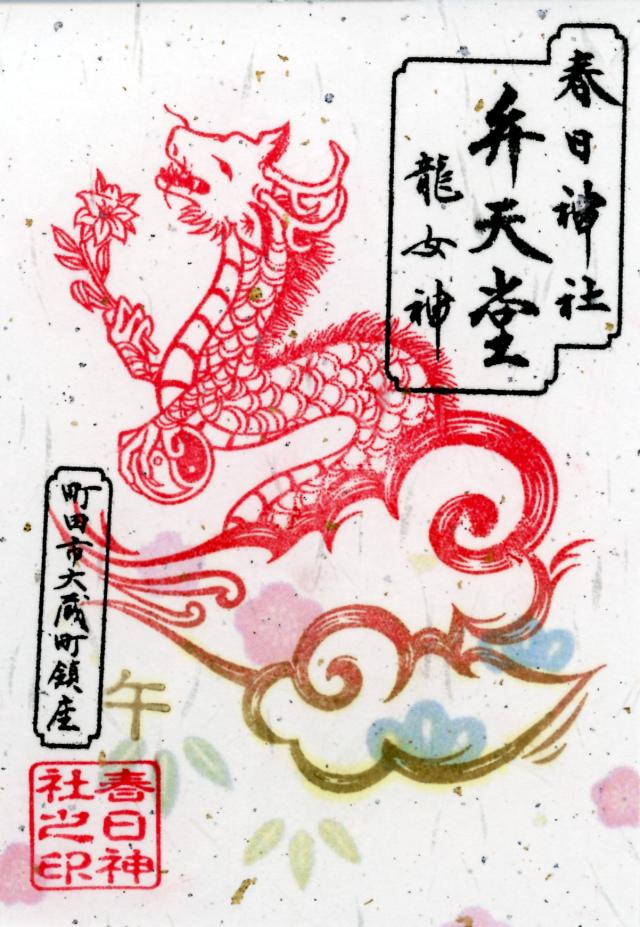 春日神社
弁天堂
龍女神
町田市大蔵町鎮座
午
春日神
社之印